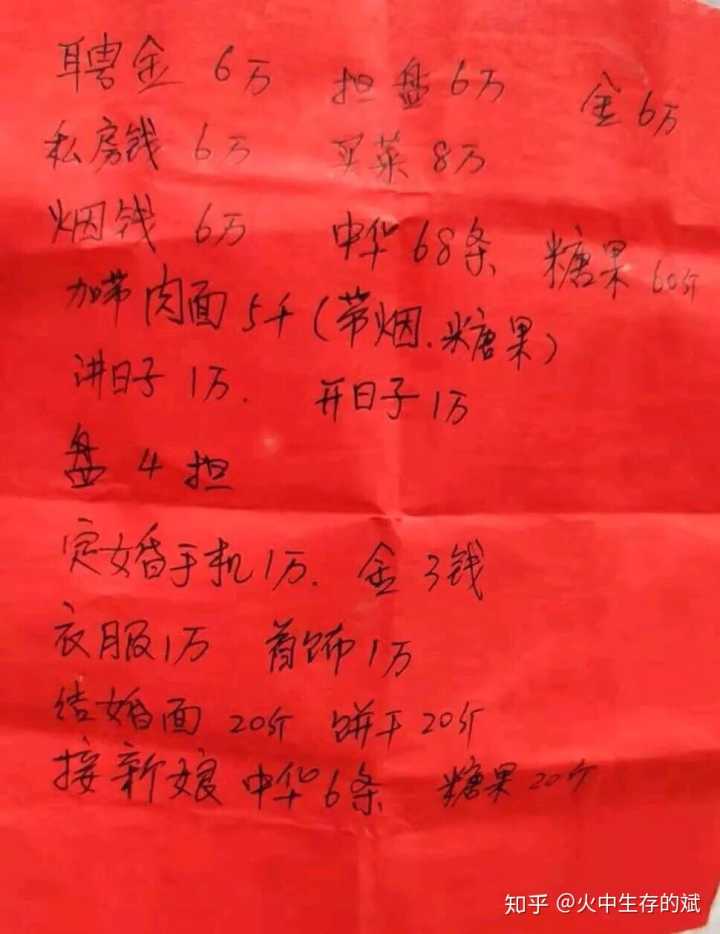 聘金 6万 担盘6万 金6万
私房钱 6万 买菜 8万
烟钱 6万 中华68条 糖果 60斤
加带肉面5千(带烟.糖果)
讲日子 1万. 开日子1万
盘 4 担
定婚手机1万. 金3钱
衣服1万 首饰1万
结婚面 20斤 饼干20斤
接新娘 中华6条 糖果20斤
知乎 @火中生存的斌